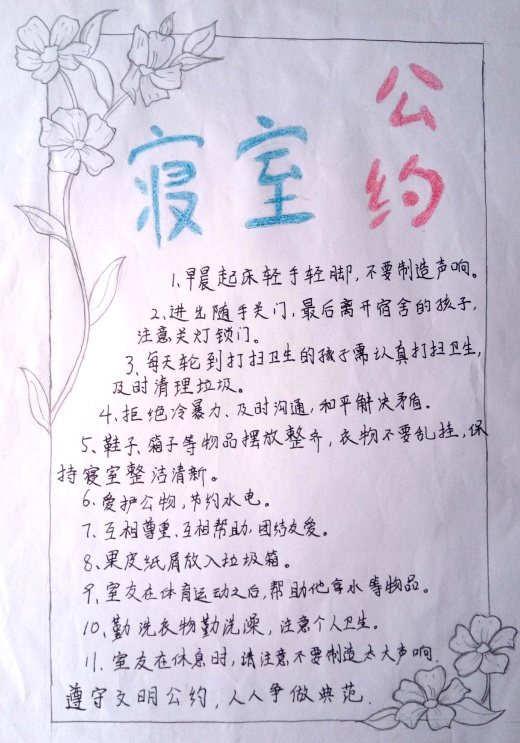 寝室公约
1、早晨起床轻手轻脚，不要制造声响。
2、进出随手关门，最后离开宿舍的孩子，
注意关灯锁门。
3、每天轮到打扫卫生的孩子需认真打扫卫生，
及时清理垃圾。
4、拒绝冷暴力、及时沟通，和平解决矛盾。
5、鞋子、箱子等物品摆放整齐，衣物不要乱挂，保
持寝室整洁清新。
6、爱护公物，节约水电。
7、互相尊重、互相帮助，团结友爱。
8、果皮纸屑放入垃圾箱。
9、室友在体育运动之后，帮助他拿水等物品。
10、勤洗衣物勤洗澡，注意个人卫生。
11、室友在休息时，请注意不要制造太大声响。
遵守文明公约，人人争做典范.